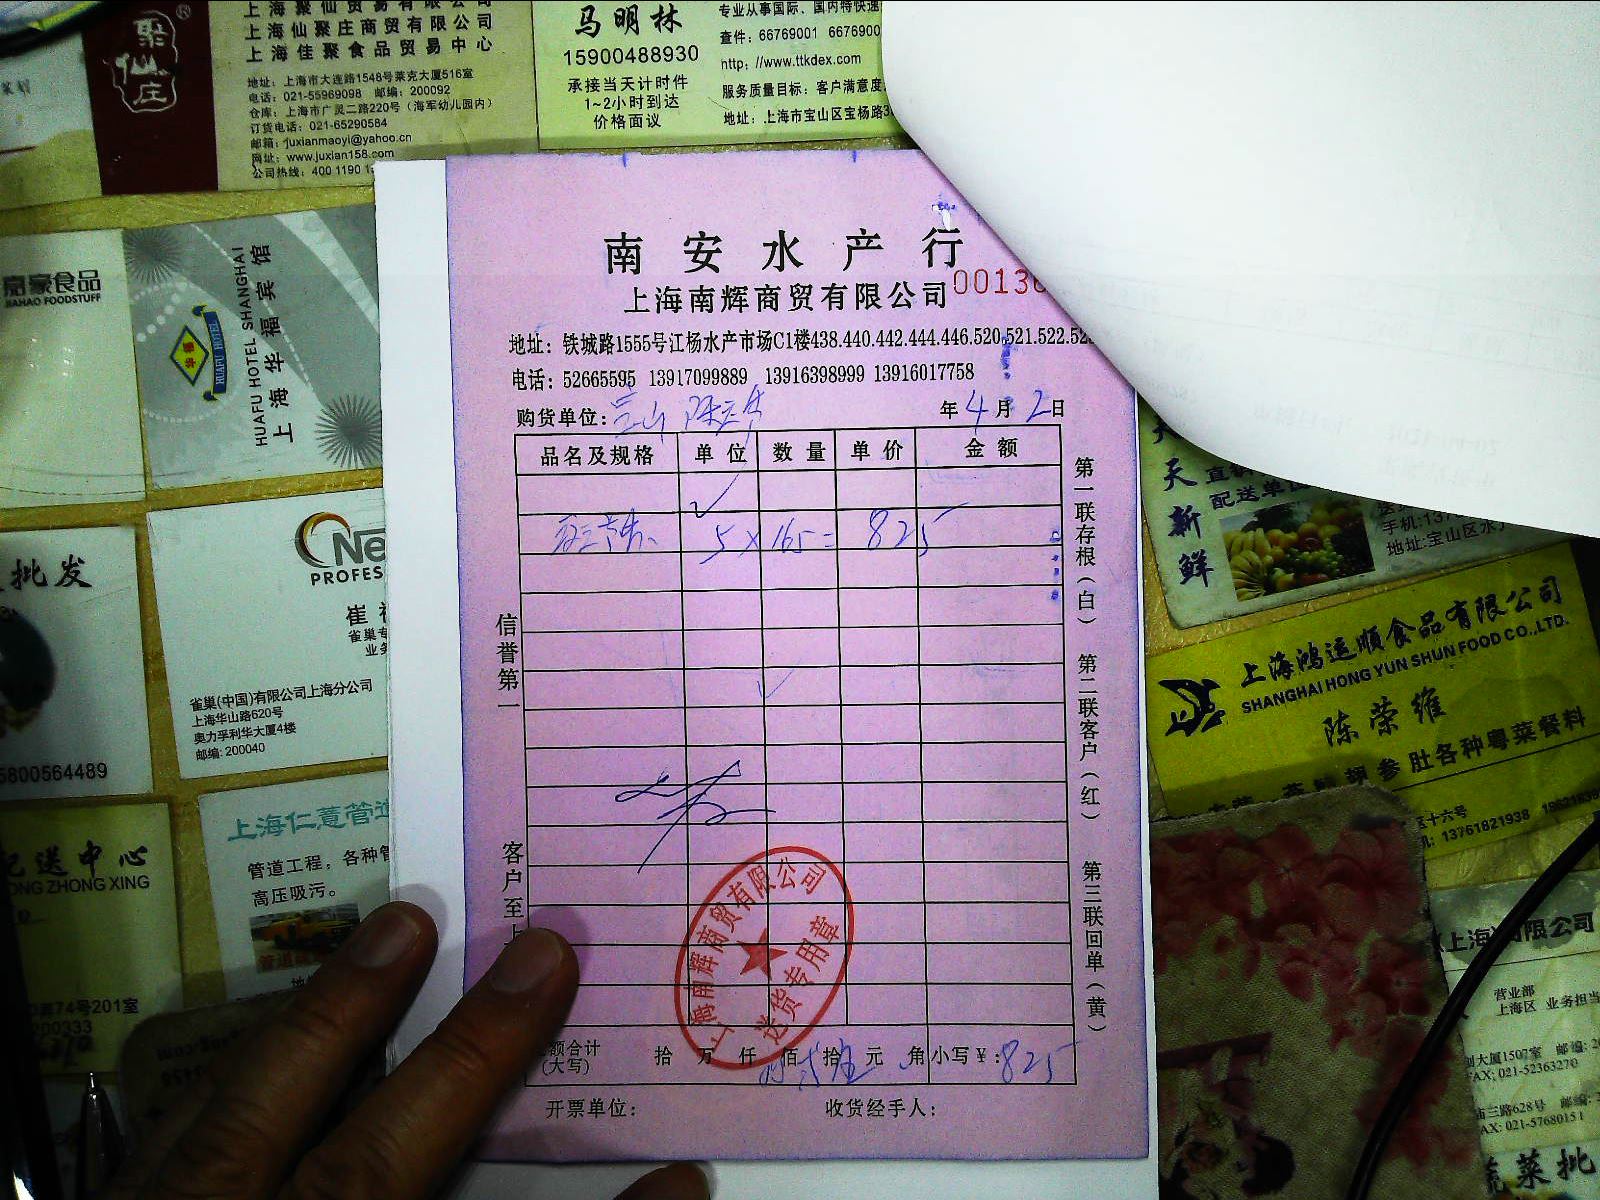 聚仙庄®
上海聚仙贸易有限公司
上海仙聚庄商贸有限公司
上海佳聚食品贸易中心
地址：上海市大连路1548号莱克大厦516室
电话：021-55969098 邮编：200092
仓库：上海市广灵二路220号（海军幼儿园内）
订货电话：021-65290584
邮箱：juxianmaoyi@yahoo.cn
网址：www.juxian158.com
公司热线：400 1190 1
马明林
15900488930
承接当天计时件
1~2小时到达
价格面议
专业从事国际、国内特快速
查件：66769001 6676900
http：//www.ttkdex.com
服务质量目标：客户满意度
地址：上海市宝山区宝杨路3
富豪食品
IAHAO FOODSTUFF
华福
HUAFU HOTEL
HUAFU HOTEL SHANGHAI
上海华福宾馆
批发
5800564489
Ne
PROFES
崔
雀巢专
业务
雀巢(中国)有限公司上海分公司
上海华山路620号
奥力孚利华大厦4楼
邮编: 200040
上海仁薏管道
管道工程，各种管
高压吸污。
配送中心
ONG ZHONG XING
74号201室
200333
南安水产行
上海南辉商贸有限公司
0013
地址：铁城路1555号江杨水产市场C1楼438.440.442.444.446.520.521.522.52
电话：52665595 13917099889 13916398999 13916017758
购货单位：宝山
年 4 月 2 日
品名及规格 单位 数量 单价 金额
5 × 165 = 825
信誉第一
客户至上
第一联存根（白） 第二联客户（红） 第三联回单（黄）
上海南辉商贸有限公司
送货专用章
金额合计(大写) 拾 万 仟 佰 拾 元 角 小写￥：825
开票单位： 收货经手人：
天天新鲜
直销
配送单位
手机:137
地址:宝山区水
上海鸿运顺食品有限公司
SHANGHAI HONG YUN SHUN FOOD CO.,LTD.
陈荣维
翅参肚各种粤菜餐料
区十六号
机: 13761821938
(上海)有限公司
营业部
上海区 业务担当
创大厦1507室 邮编: 20
FAX: 021-52363270
庙三路628号 邮编: 2
AX: 021-57680151
蔬菜批